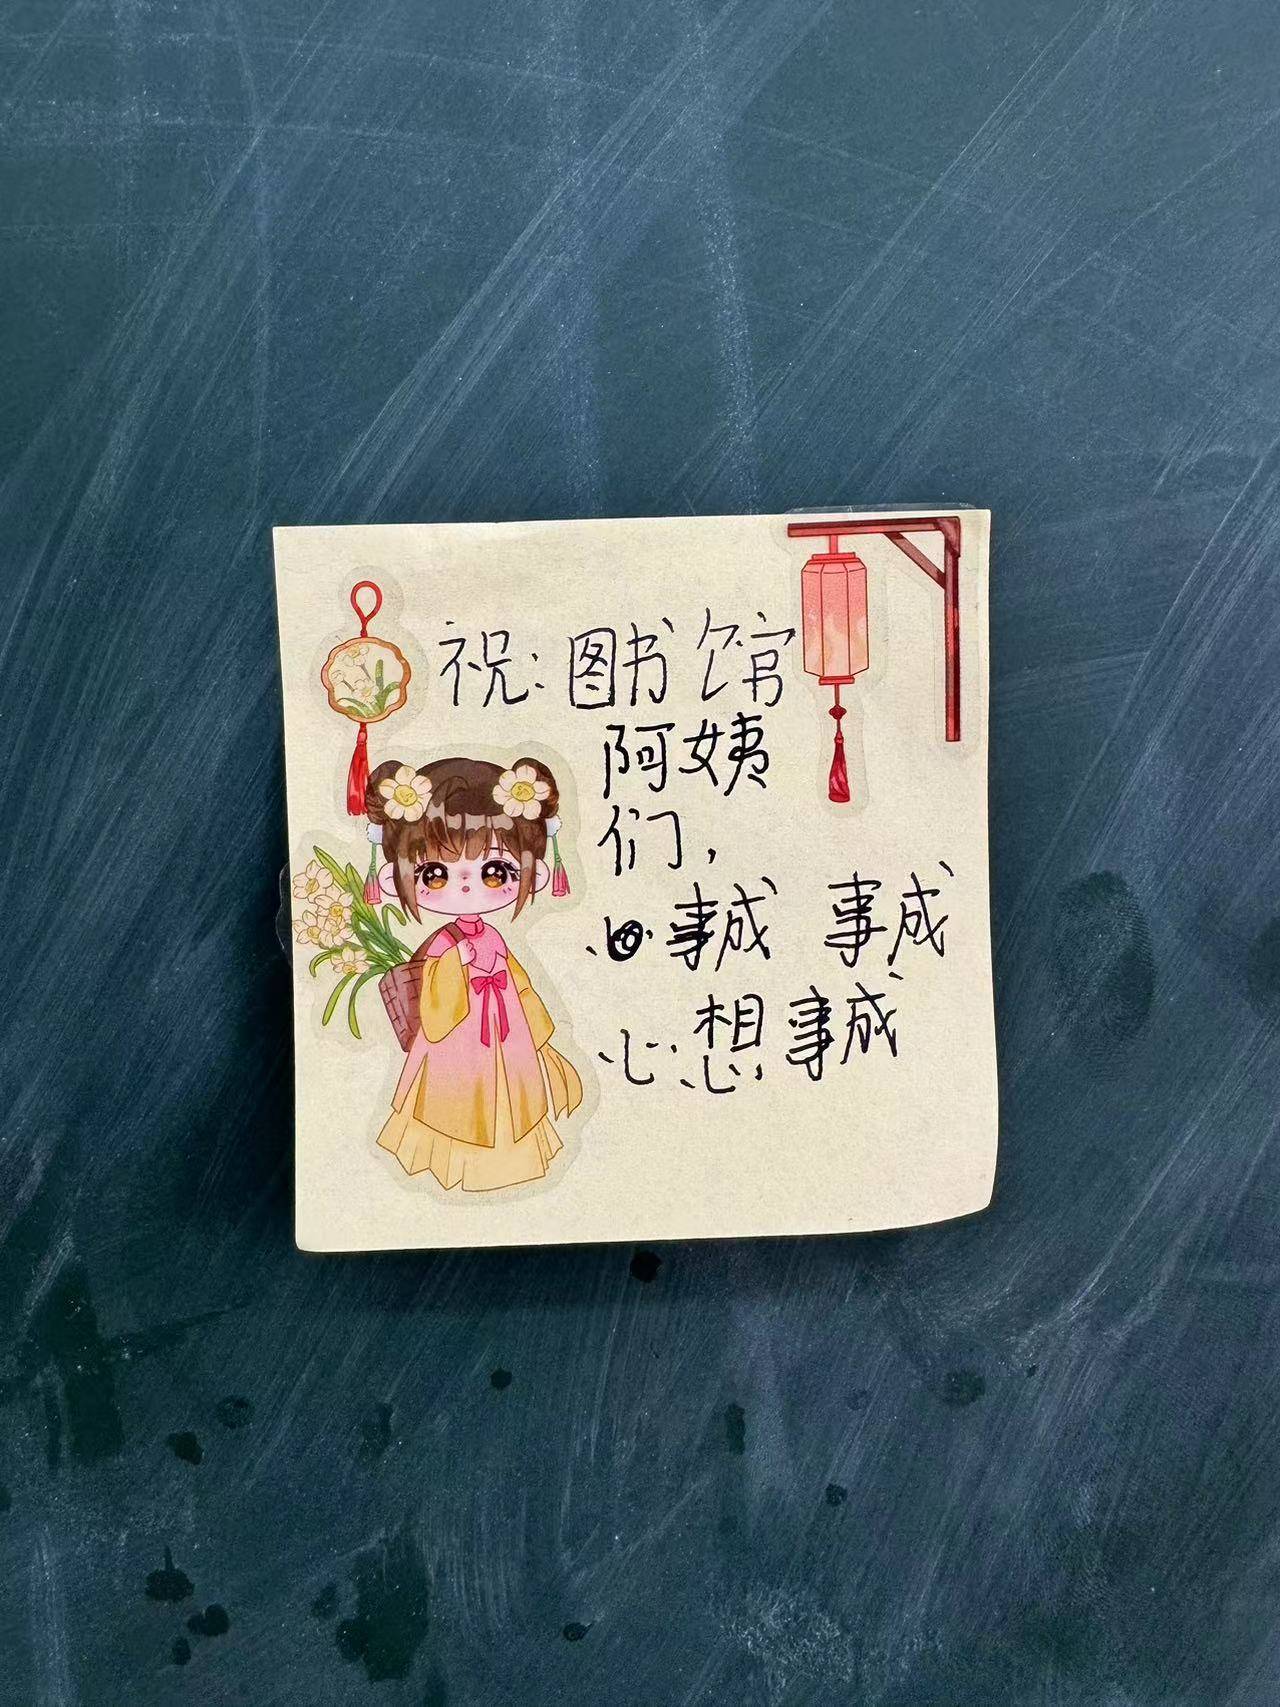 祝:图书馆
阿姨
们,
心事成 事成
心想事成